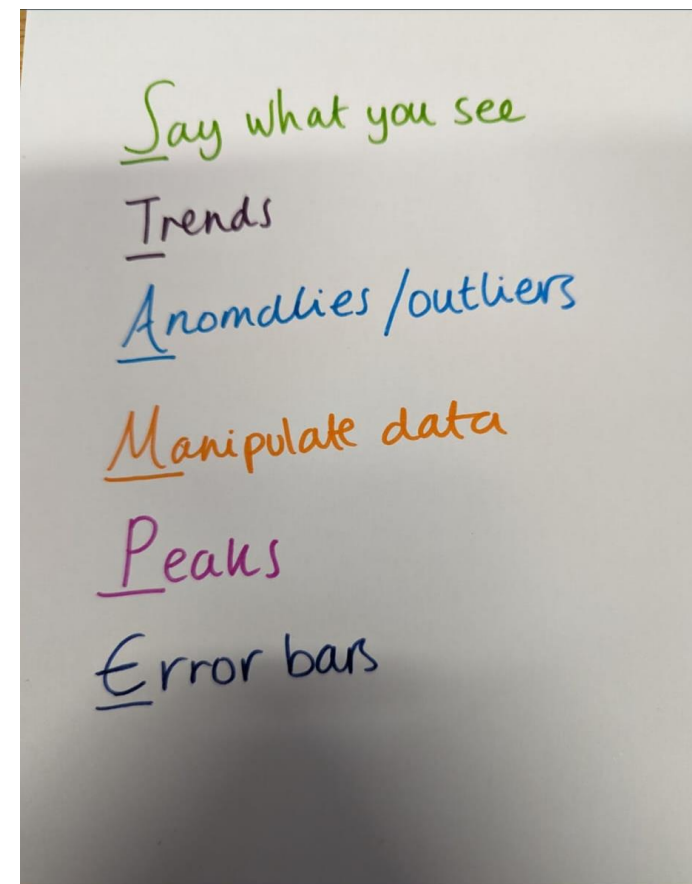 Say what you see
Trends
Anomallies/outliers
Manipulate data
Peaks
Error bars